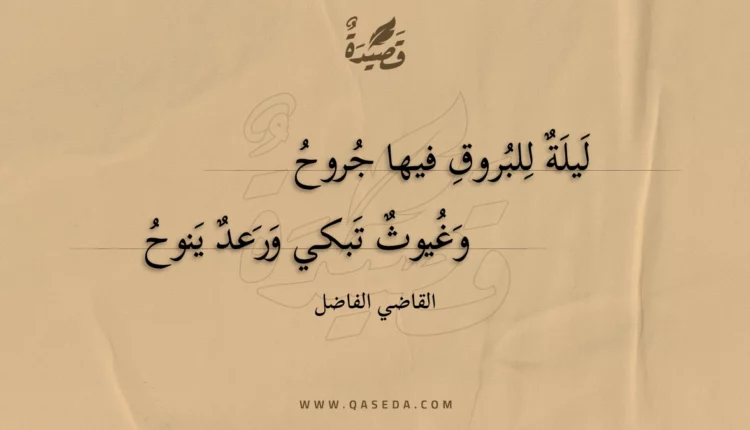 قَصِيْدَةٌ
لَيلَةٌ لِلبُروقِ فيها جُروحُ
وَغُيوثٌ تَبكي وَرَعدٌ يَنوحُ
القاضي الفاضل
WWW.QASEDA.COM